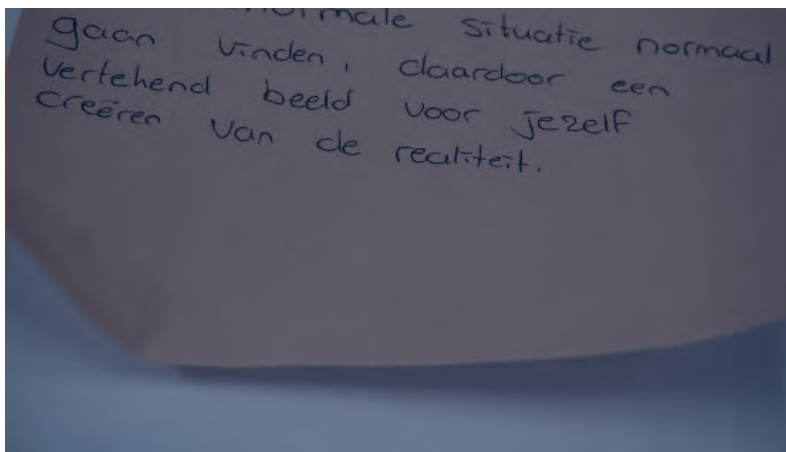 situatie normaal
gaan vinden, daardoor een
vertekend beeld voor jezelf
creëren van de realiteit.